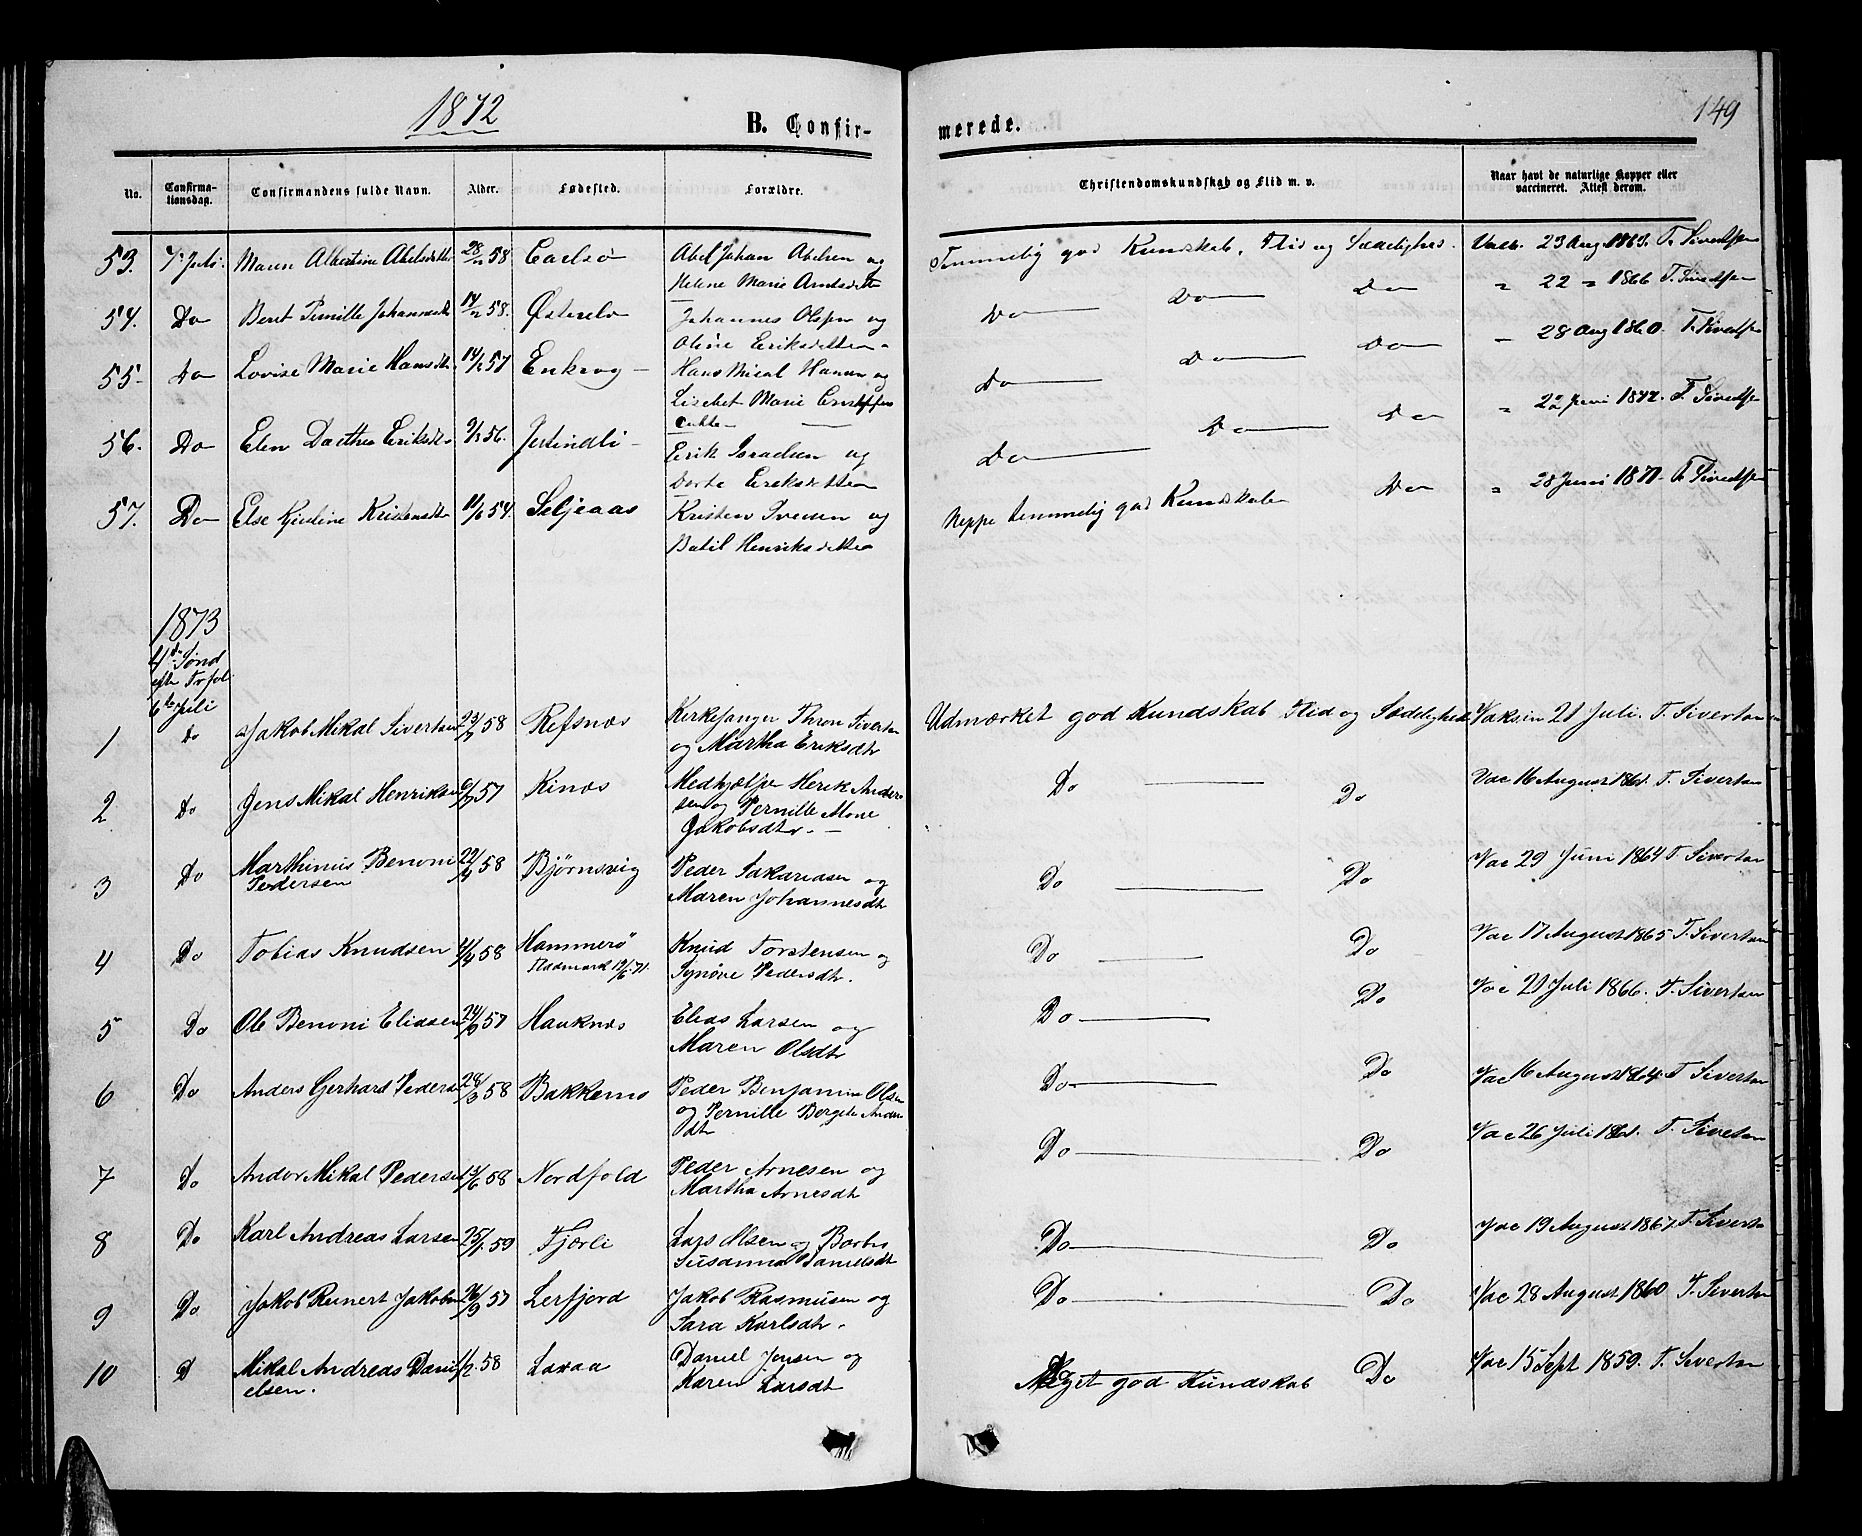 1872
149
B. Confir-
merede.
No.
Confirma-
tionsdag.
Confirmandens fulde Navn.
Alder.
Fødested.
Forældre.
Christendomskundskab og Flid m. v.
Naar havt de naturlige Kopper eller
vaccineret. Attest derom.
53. 7 Juli Maren Albertine 58 Abel Johan Abelsen og
Helene Marie
Temmelig god Kundskab, Flid og Vacc. 23 Aug. T. Sivertsen
54. Do Beret Pernille 58. Johannes Olsen og
Oline Eriksdatter
Do Do Do " 22 " 1866 T. Sivertsen
55 Do Lovise Marie Hansdtr. 57 Hans Mical Hansen og
Lisebet Marie
Do Do Do 28 Aug 1860. T. Sivertsen
56. Do Elen Dorthea Eriksdtr 9/3 56. Erik Israelsen og
Dorte Eriksdatter
Do Do Do " Juni 1872. T. Sivertsen
57. Do Else 54. Seljeaas Kristen Iversen og
Henriksdatter
Neppe temmelig god Kundskab Do " 28 Juni T. Sivertsen
1873
4de Sønd
efter Trefol.
6te Juli
1 Do Jakob Mikal Sivertsen 58 Refsnæs Kirkesanger Thron Sivertsen
og Martha Eriksdtr
Udmærket god Kundskab Flid og Sædelighed Vaksin 21 Juli. T. Sivertsen
2 Do Jens Mikal Henriksen 57 Kinæs Medhjælper Henrik Ander
sen og Pernille Mone
Jakobsdtr. -
Do Do Vac 16 August 1861. T. Sivertsen
3 Do Marthinus Benoni 22/4 58 Bjørnsvig Peder Sakariasen og
Pedersen Maren Johannesdtr
Do Do Vac 29 Juni 1864 T. Sivertsen
4 Do Tobias Knudsen 58 Hammerø Knud Torstensen og
19/6 71. Synøve Pedersdtr.
Do Do Vac 17 August 1865 T. Sivertsen
5 Do Ole Benoni Eliasen 24/9 57 Hauknes Elias Larsen og
Maren Olsdtr
Do Do Vac 21 Juli 1866. T. Sivertsen
6 Do Anders Gerhard Pedersen 28/3 58 Bakkemo Peder Benjamin Olsen
og Pernille Bergete Anders
dtr
Do Do Vac 16 August 1864. T. Sivertsen
7 Do Andor Mikal Pedersen 58 Nordfold Peder Arnesen og
Martha Arnesdtr
Do Do Vac 26 Juli 1861. T. Sivertsen
8 Do Karl Andreas Larsen 25/1 59 Fjerli Lars Olsen og Barbro
Susanna Danielsdt
Do Do Vac 19 August 1867 T. Sivertsen
9 Do Jakob Reinert Jakobsen 26/9 57 Lerfjord Jakob Rasmusen og
Sara Karlsdtr.
Do Do Vac 28 August 1860 T. Sivertsen
10 D Mikal Andreas Dani 1/2. 58 Laxaa Daniel Jensen og
elsen. Karen Larsdtr
Meget god Kundskab Do Vac 15 Sept 1859. T. Sivertsen